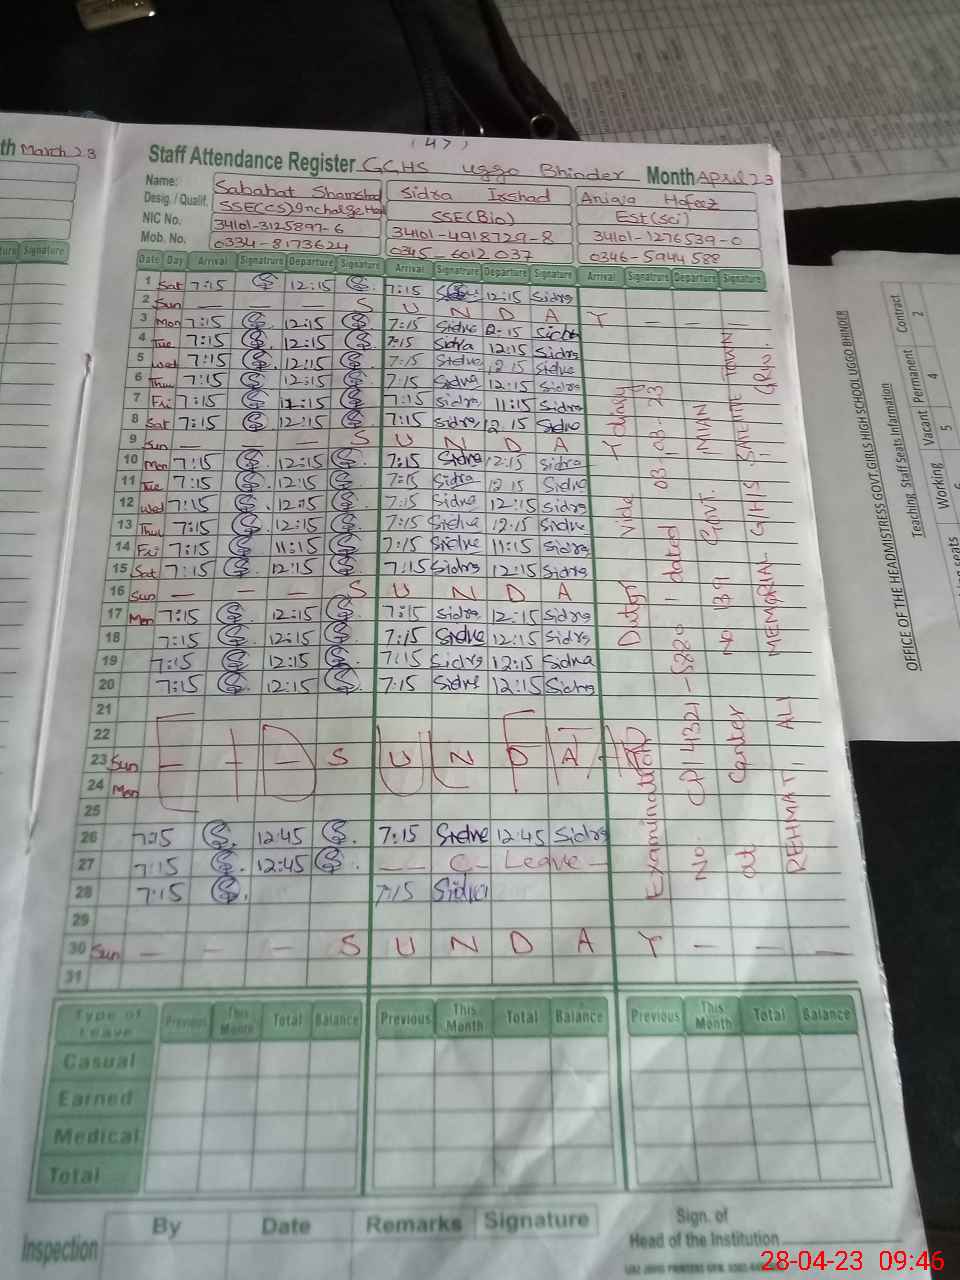 th March 23
ture Signature
(47)
Staff Attendance Register GGHS Uggo Bhinder Month April 23
Name: Sabahat Shamshad Sidra Irshad Aniqa Hafeez
Desig. / Qualif. SSE(CS) Incharge Head SSE(Bio) Est(sci)
NIC No. 34101-3125897-6 34101-4918729-8 34101-1276539-0
Mob. No. 0334-8173624 0345-6012037 0346-5944588
Date Day Arrival Signatrure Departure Signature Arrival Signatrure Departure Signature Arrival Signatrure Departure Signature
1 Sat 7:15 12:15 7:15 12:15 Sidra
2 Sun — — — S U N D A Y — — —
3 Mon 7:15 12:15 7:15 Sidra 12:15 Sidra
4 Tue 7:15 12:15 7:15 Sidra 12:15 Sidra
5 Wed 7:15 12:15 7:15 Sidra 12:15 Sidra
6 Thu 7:15 12:15 7:15 Sidra 12:15 Sidra
7 Fri 7:15 11:15 7:15 Sidra 11:15 Sidra
8 Sat 7:15 12:15 7:15 Sidra 12:15 Sidra
9 Sun — — — S U N D A Y
10 Mon 7:15 12:15 7:15 Sidra 12:15 Sidra
11 Tue 7:15 12:15 7:15 Sidra 12:15 Sidra
12 Wed 7:15 12:15 7:15 Sidra 12:15 Sidra
13 Thu 7:15 12:15 7:15 Sidra 12:15 Sidra
14 Fri 7:15 11:15 7:15 Sidra 11:15 Sidra
15 Sat 7:15 12:15 7:15 Sidra 12:15 Sidra
16 Sun — — — S U N D A
17 Mon 7:15 12:15 7:15 Sidra 12:15 Sidra
18 7:15 12:15 7:15 Sidra 12:15 Sidra
19 7:15 12:15 7:15 Sidra 12:15 Sidra
20 7:15 12:15 7:15 Sidra 12:15 Sidra
21
22 EID
23 Sun — — — S U N D A Y
24 Mon
25
26 7:15 12:45 7:15 Sidra 12:45 Sidra
27 7:15 12:45 — C- Leave —
28 7:15 7:15 Sidra
29
30 Sun — — — S U N D A Y — — —
31
Examination Duty Vide
No. CP/14321-5880 dated 03.03.23
at Center No 139 GOVT. MIAN
REHMAT ALI MEMORIAL G/H/S SATELITE TOWN GRW.
Type of Leave Previous This Month Total Balance Previous This Month Total Balance Previous This Month Total Balance
Casual
Earned
Medical
Total
Inspection By Date Remarks Signature
Sign. of
Head of the Institution
OFFICE OF THE HEADMISTRESS GOVT.GIRLS HIGH SCHOOL UGGO BHINDER
Teaching Staff Seats Information
Working Vacant Permanent Contract
5 4 2
28-04-23 09:46